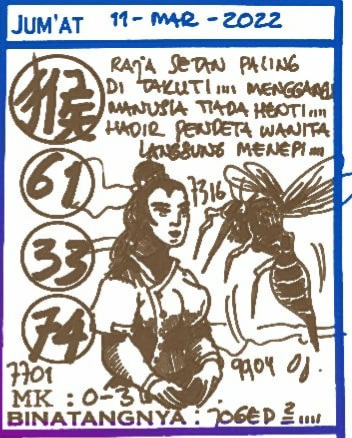 JUM'AT 11-MAR-2022
RAJA SETAN PALING
DI TAKUTI.... MENGGANGU
MANUSIA TIADA HENTI....
HADIR PENDETA WANITA
LANGSUNG MENEPI....
猴
61
7316
33
74
7701
9904
MK : 0-3
BINATANGNYA : JOGED 2....